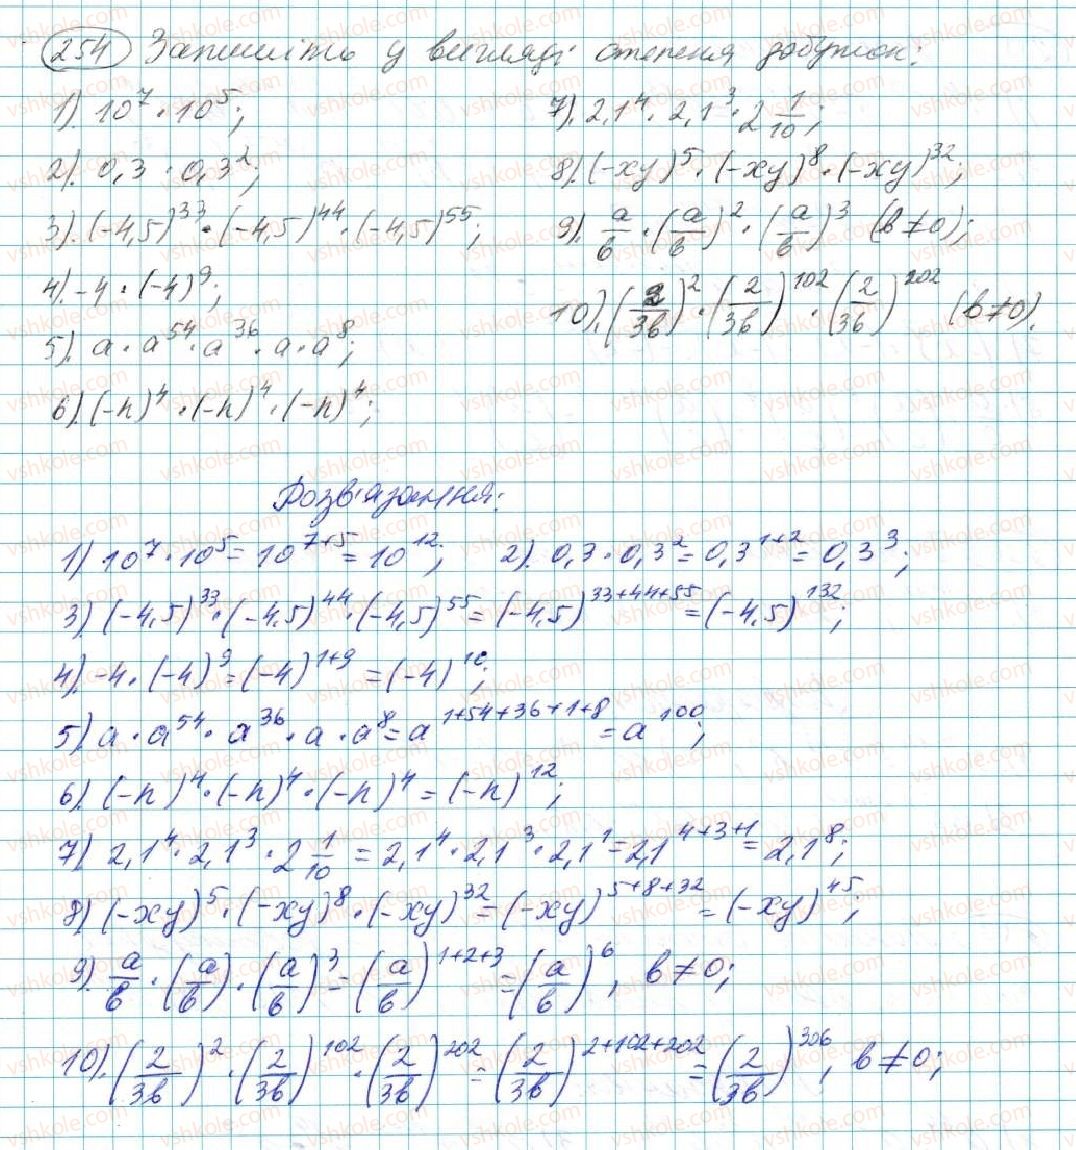 254 Запишіть у вигляді степеня добуток:
1). 10⁷ · 10⁵;
2). 0,3 · 0,3²;
3). (-4,5)³³ · (-4,5)⁴⁴ · (-4,5)⁵⁵;
4). -4 · (-4)⁹;
5). a · a⁵⁴ · a³⁶ · a · a⁸;
6). (-n)⁴ · (-n)⁴ · (-n)⁴;
7). 2,1⁴ · 2,1³ · 2 1/10;
8). (-xy)⁵ · (-xy)⁸ · (-xy)³²;
9). a/b · (a/b)² · (a/b)³ (b≠0);
10). (2/3b)² · (2/3b)¹⁰² · (2/3b)²⁰² (b≠0).
Розв'язання:
1) 10⁷ · 10⁵ = 10⁷⁺⁵ = 10¹²; 2). 0,3 · 0,3² = 0,3¹⁺² = 0,3³;
3) (-4,5)³³ · (-4,5)⁴⁴ · (-4,5)⁵⁵ = (-4,5)³³⁺⁴⁴⁺⁵⁵ = (-4,5)¹³²;
4). -4 · (-4)⁹ = (-4)¹⁺⁹ = (-4)¹⁰;
5) a · a⁵⁴ · a³⁶ · a · a⁸ = a¹⁺⁵⁴⁺³⁶⁺¹⁺⁸ = a¹⁰⁰;
6). (-n)⁴ · (-n)⁴ · (-n)⁴ = (-n)¹²;
7) 2,1⁴ · 2,1³ · 2 1/10 = 2,1⁴ · 2,1³ · 2,1¹ = 2,1⁴⁺³⁺¹ = 2,1⁸;
8) (-xy)⁵ · (-xy)⁸ · (-xy)³² = (-xy)⁵⁺⁸⁺³² = (-xy)⁴⁵;
9). a/b · (a/b) · (a/b)³ = (a/b)¹⁺²⁺³ = (a/b)⁶, b≠0;
10). (2/3b)² · (2/3b)¹⁰² · (2/3b)²⁰² = (2/3b)²⁺¹⁰²⁺²⁰² = (2/3b)³⁰⁶, b≠0;